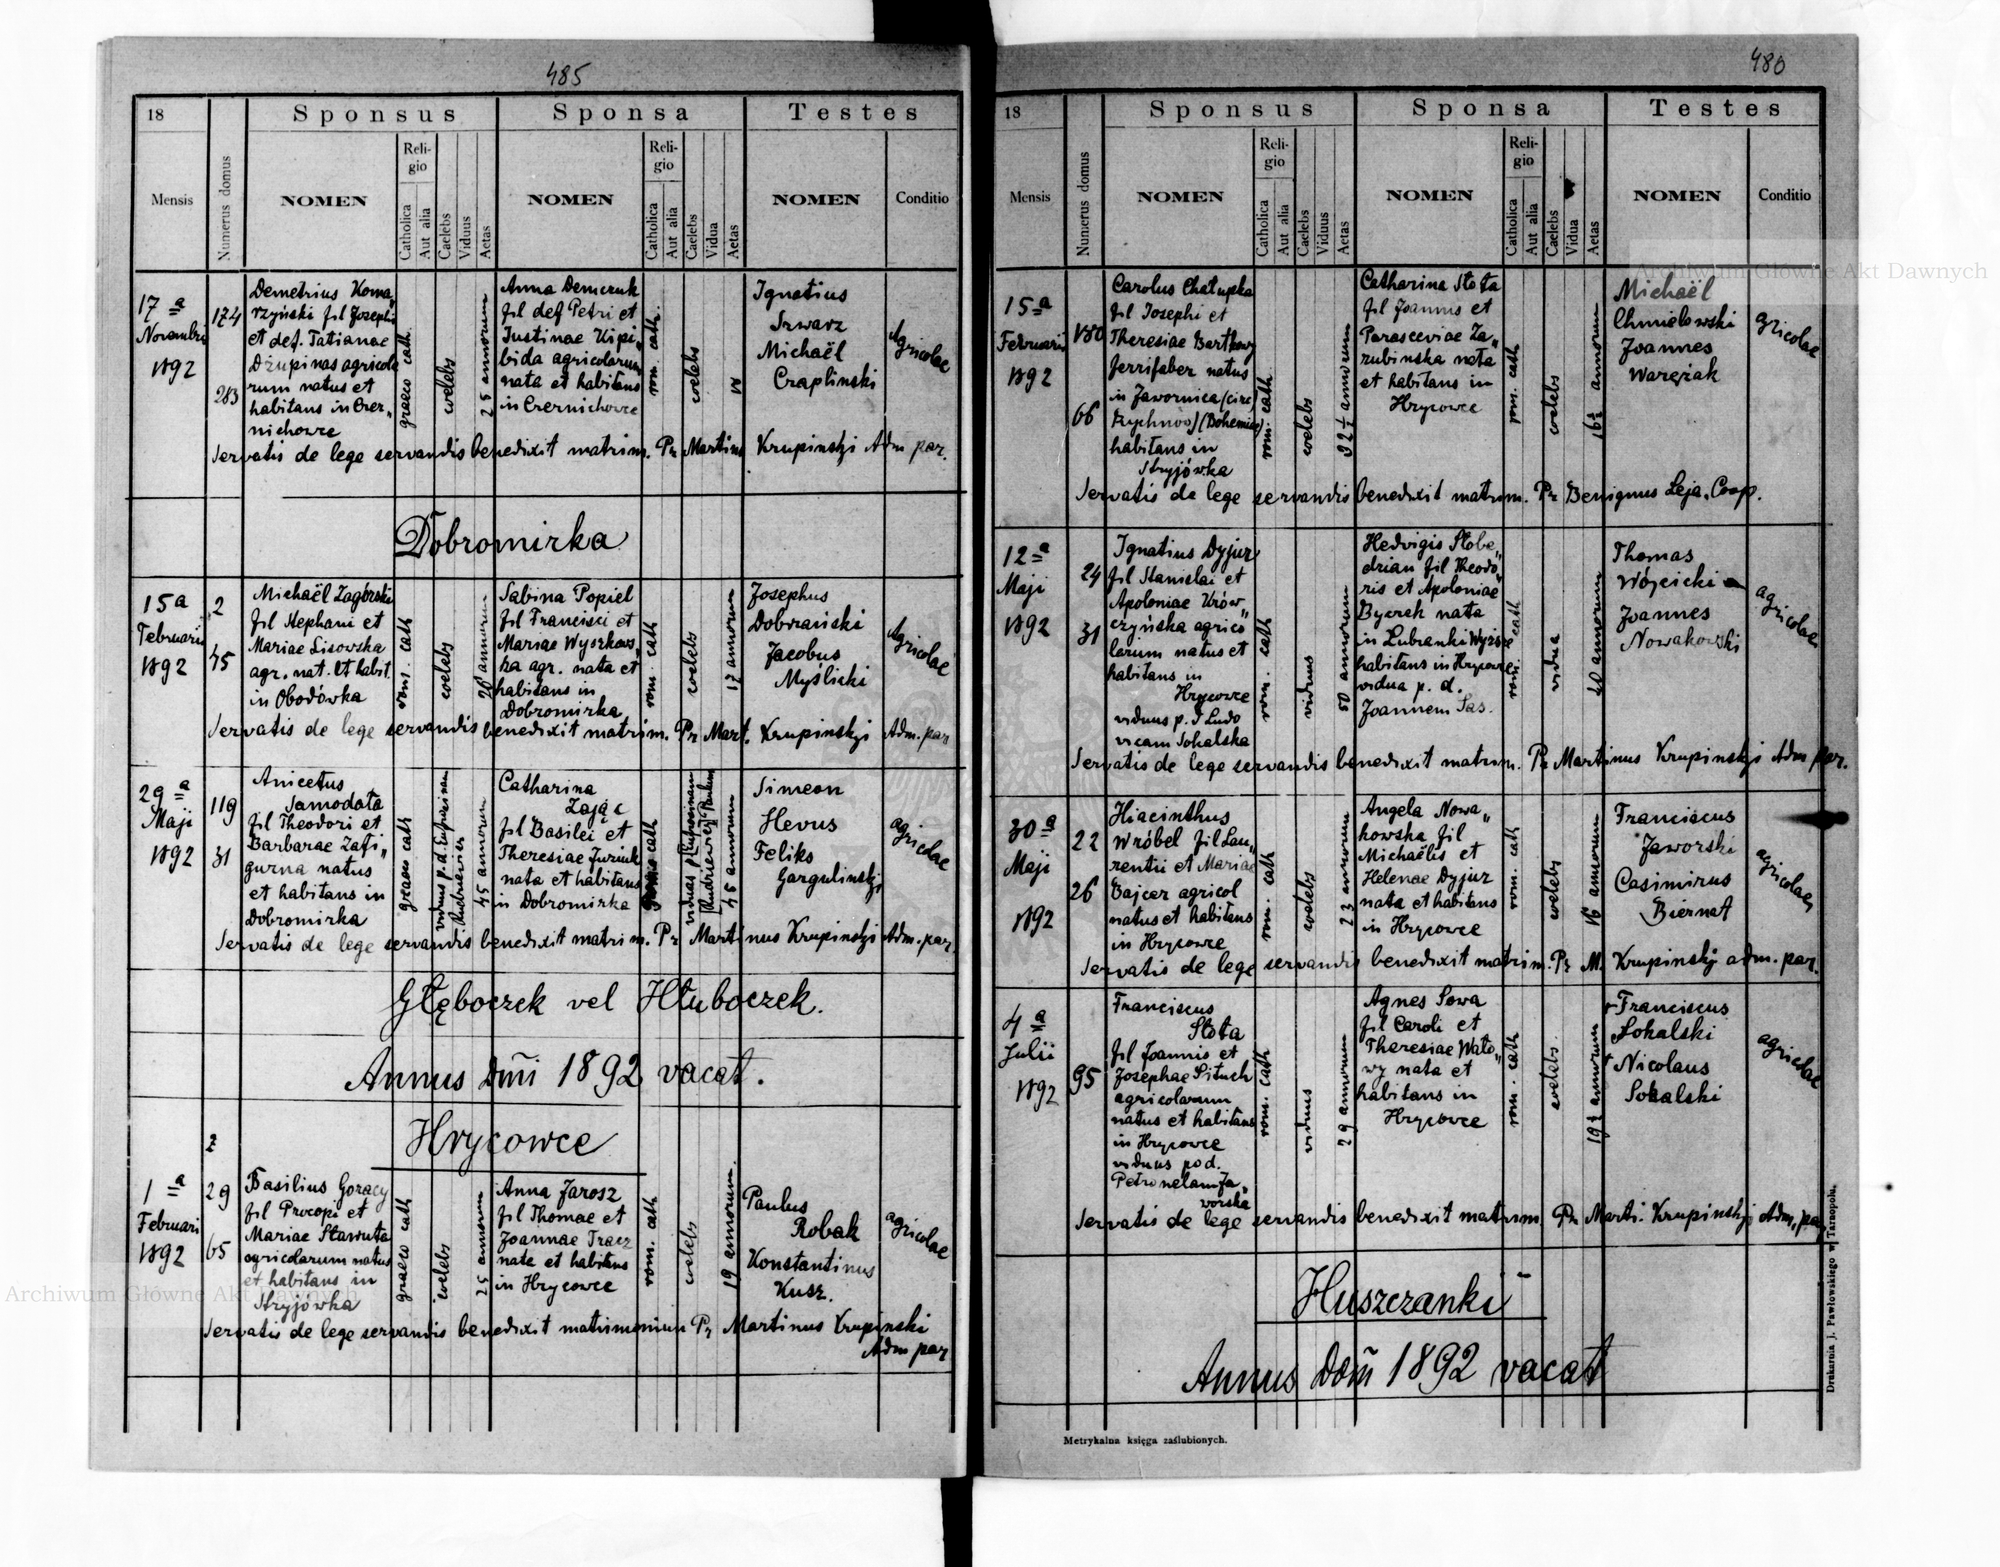 485
18
Sponsus
Sponsa
Testes
Mensis
Numerus domus
NOMEN
Religio
Catholica
Aut alia
Caelebs
Viduus
Aetas
NOMEN
Religio
Catholica
Aut alia
Caelebs
Vidua
Aetas
NOMEN
Conditio
17a
Novembri
1892
174
283
Demetrius Koma„
rzyński fil Josephi
et def. Tatianae
Dżupinas agricola
rum natus et
habitans in Czer„
nichowce
graeco cath.
coelebs
25 annorum
Anna Demczuk
fil def Petri et
Justinae Kipi„
bida agricolarum
nata et habitans
in Czernichowce
rom. cath.
coelebs
Ignatius
Szwarz
Michaël
Czaplinski
Agricolae
Servatis de lege servandis benedixit matrim. Pr Martinus Krupinskyi Adm par.
Dobromirka
15a
Februarii
1892
2
45
Michaël Zagórski
fil Stephani et
Mariae Lisowska
agr. nat. et habit.
in Obodówka
rom. cath
coelebs
annorum
Sabina Popiel
fil Francisci et
Mariae Wyszkows„
ka agr. nata et
habitans in
Dobromirka
rom. cath
coelebs
17 annorum
Josephus
Dobrzański
Jacobus
Myślicki
Agricolae
Servatis de lege servandis benedixit matrim. Pr Mart. Krupinskyi Adm. par
29a
Maji
1892
119
31
Anicetus
Samodała
fil Theodori et
Barbarae Zafi„
gurna natus
et habitans in
Dobromirka
graeco cath
viduus p.d. Eufrosinam
45 annorum
Catharina
Zając
fil Basilei et
Theresiae Juzink
nata et habitans
in Dobromirka
cath
viduas p
45 annorum
Simeon
Hevus
Feliks
Gargulinskyi
agricolae
Servatis de lege servandis benedixit matrim. Pr Martinus Krupinskyi Adm. par.
Głęboczek vel Hłuboczek.
Annus Dm̃i 1892 vacat.
2
Hrycowce
1a
Februari
1892
29
65
Basilius Goracy
fil Procopi et
Mariae Stawuta
agricolarum natus
et habitans in
Stryjówka
graeco cath
coelebs
25 annorum
Anna Jarosz
fil Thomae et
Joannae Tracz
nata et habitans
in Hrycowce
rom. cath
coelebs
19 annorum.
Paulus
Robak
Konstantinus
Kusz.
agricolae
Servatis de lege servandis benedixit matrimonium Pr Martinus Krupinski
Adm par
480
18
Sponsus
Sponsa
Testes
Mensis
Numerus domus
NOMEN
Religio
Catholica
Aut alia
Caelebs
Viduus
Aetas
NOMEN
Religio
Catholica
Aut alia
Caelebs
Vidua
Aetas
NOMEN
Conditio
15a
Februarii
1892
180
66
Carolus Chałupka
fil Josephi et
Theresiae Bartkowy
ferrifaber natus
in Jawornica (circ)
Rychnow) (Bohemiae)
habitans in
Stryjówka
rom. cath
coelebs
32½ annorum
Catharina Słota
fil Joannis et
Parasceviae Za„
rubinska nata
et habitans in
Hrycowce
rom. cath
coelebs
16½ annorum
Michaël
Chmielowski
Joannes
Waręzak
agricolae
Servatis de lege servandis benedixit matrim. Pr Benignus Leja. Coop.
12a
Maji
1892
24
31
Ignatius Dyjur
fil Stanislai et
Apoloniae Krów„
czyńska agrico
larum natus et
habitans in
Hrycowce
viduus p. d Ludo
vicam Sokalska
rom. cath
viduus
50 annorum
Hedvigis Słobo„
dzian fil Theodo„
ris et Apoloniae
Byczak nata
in Lubianki Wyższe
habitans in Hrycowce
vidua p. d.
Joannem Sas.
rom. cath
vidua
40 annorum
Thomas
Wójcicki
Joannes
Nowakowski
agricolae
Servatis de lege servandis benedixit matrim. Pr Martinus Krupinskyi Adm par.
30a
Maji
1892
22
26
Hiacinthus
Wróbel fil Lau„
rentii et Mariae
Bajcer agricol
natus et habitans
in Hrycowce
rom. cath
coelebs
23 annorum
Angela Nowa„
kowska fil
Michaëlis et
Helenae Dyjur
nata et habitans
in Hrycowce
rom. cath
coelebs
16 annorum
Franciscus
Jaworski
Casimirus
Biernat
agricolae
Servatis de lege servandis benedixit matrim. Pr M. Krupinskyi adm. par.
4a
Julii
1892
95
Franciscus
Słota
fil Joannis et
Josephae Situch
agricolarum
natus et habitans
in Hrycowce
viduus po d.
Petronelam Ja„
vorska
rom. cath
viduus
29 annorum
Agnes Sowa
fil Caroli et
Theresiae Wato„
wy nata et
habitans in
Hrycowce
rom. cath
coelebs.
19½ annorum
Franciscus
Sokalski
Nicolaus
Sokalski
agricolae
Servatis de lege servandis benedixit matrim Pr Marti. Krupinskyi Adm. par
Huszczanki
Annus Dom̃ 1892 vacat
Metrykalna księga zaślubionych.
Drukarnia J. Pawłowskiego w Tarnopolu.
Archiwum Główne Akt Dawnych
Archiwum Główne Akt Dawnych